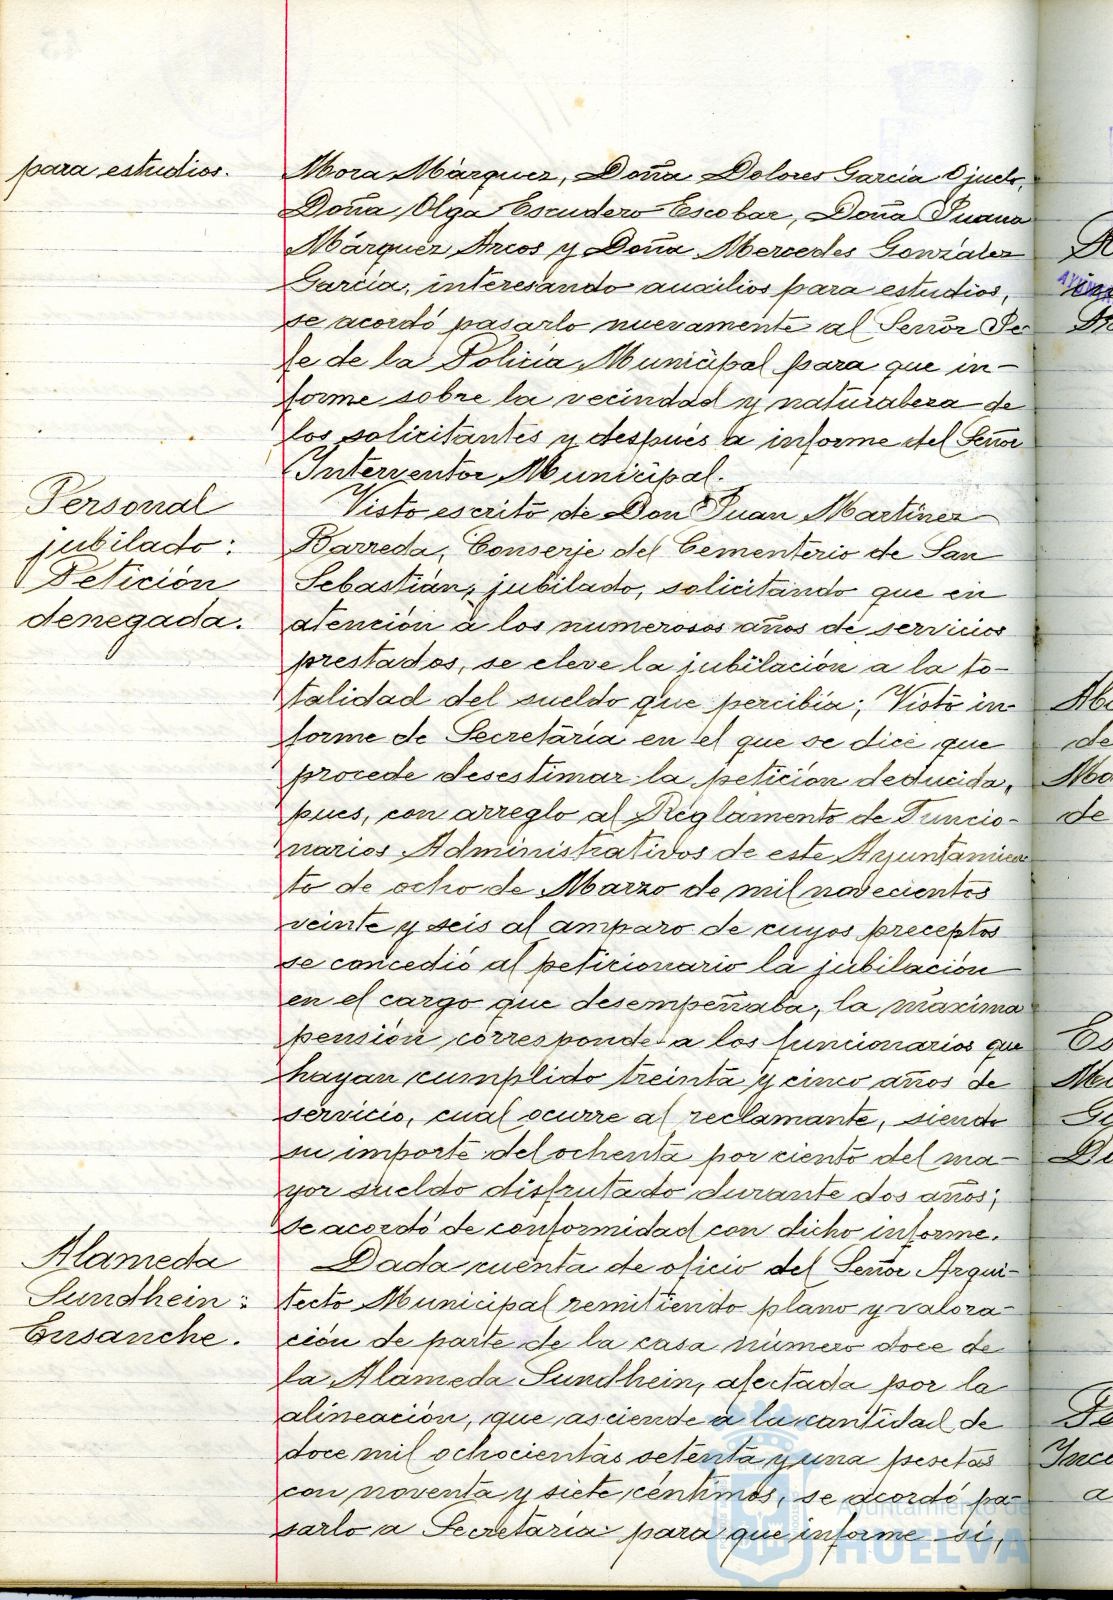 para estudios.
Mora Márquez, Doña Dolores García Ojuelo,
Doña Olga Escudero Escobar, Doña Juana
Márquez Arcos y Doña Mercedes González
García, interesando auxilios para estudios,
se acordó pasarlo nuevamente al Señor Je-
fe de la Policía Municipal para que in-
forme sobre la vecindad y naturaleza de
los solicitantes y después a informe del Señor
Interventor Municipal.
Personal
jubilado:
Petición
denegada.
Visto escrito de Don Juan Martínez
Barreda, Conserje del Cementerio de San
Sebastián, jubilado, solicitando que en
atención a los numerosos años de servicios
prestados, se eleve la jubilación a la to-
talidad del sueldo que percibía; Visto in-
forme de Secretaría en el que se dice que
procede desestimar la petición deducida,
pues, con arreglo al Reglamento de Funcio-
narios Administrativos de este Ayuntamien-
to de ocho de Marzo de mil novecientos
veinte y seis al amparo de cuyos preceptos
se concedió al peticionario la jubilación
en el cargo que desempeñaba, la máxima
pensión corresponde a los funcionarios que
hayan cumplido treinta y cinco años de
servicio, cual ocurre al reclamante, siendo
su importe del ochenta por ciento del ma-
yor sueldo disfrutado durante dos años;
se acordó de conformidad con dicho informe.
Alameda
Sundhein:
Ensanche.
Dada cuenta de oficio del Señor Arqui-
tecto Municipal remitiendo plano y valora-
ción de parte de la casa número doce de
la Alameda Sundhein, afectada por la
alineación, que asciende a la cantidad de
doce mil ochocientas setenta y una pesetas
con noventa y siete céntimos, se acordó pa-
sarlo a Secretaría para que informe si,
Ayuntamiento de
HUELVA